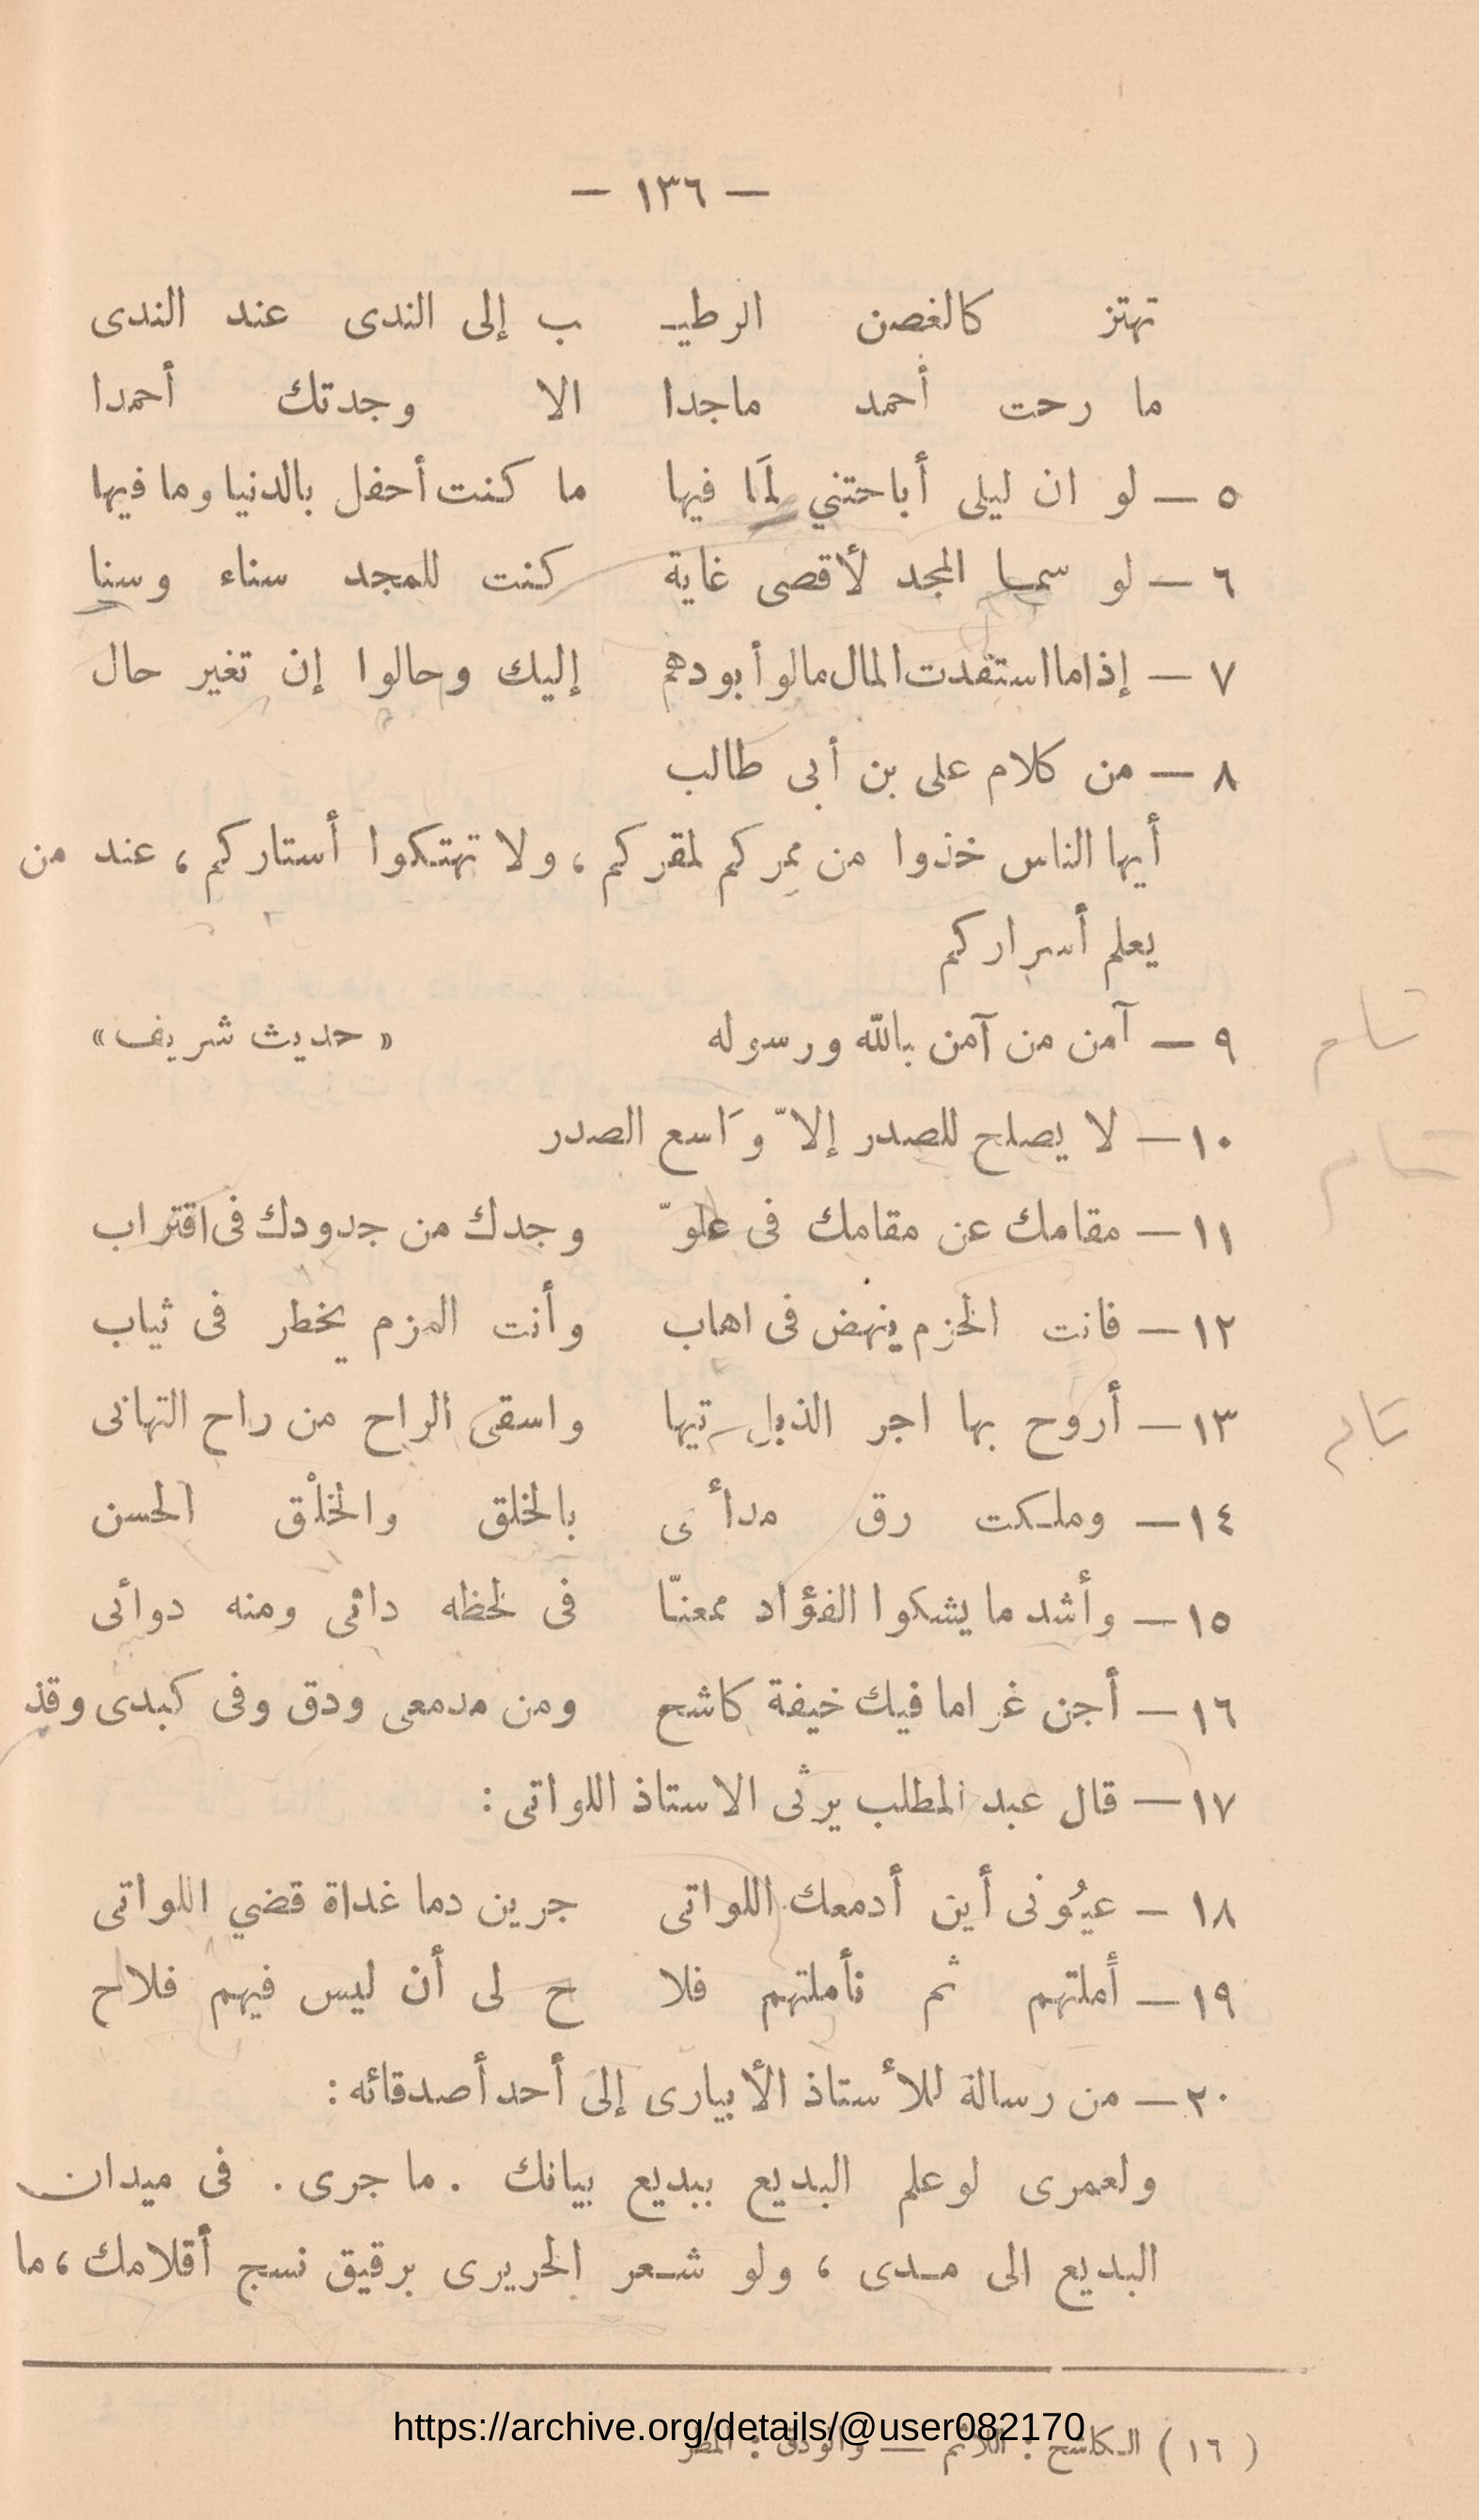 — ١٣٦ —
تهتز كالغصن الرطيـ ب إلى الندى عند الندى
ما رحت أحمد ماجدا الا وجدتك أحمدا
٥ — لو ان ليلى أباحتني لمَا فيها ما كنت أحفل بالدنيا وما فيها
٦ — لو سما المجد لأقصى غاية كنت للمجد سناء وسنا
٧ — إذاما استفدت المال مالوا بودهم إليك وحالوا إن تغير حال
٨ — من كلام على بن أبى طالب
أيها الناس خذوا من ممركم لمقركم ، ولا تهتكوا أستاركم ، عند من
يعلم أسراركم
سام
٩ — آمن من آمن بالله ورسوله « حديث شريف »
١٠ — لا يصلح للصدر إلاّ وَاسع الصدر
١١ — مقامك عن مقامك فى علوّ وجدك من جدودك فى اقتراب
١٢ — فانت الحزم ينهض فى اهاب وأنت العزم يخطر فى ثياب
١٣ — أروح بها اجر الذيل تيها واسقى الراح من راح التهانى
١٤ — وملكت رق مدأى بالخلق والخلْق الحسن
١٥ — وأشد ما يشكوا الفؤاد ممعنّا فى لحظه دائى ومنه دوائى
١٦ — أجن غراما فيك خيفة كاشح ومن مدمعى ودق وفى كبدى وقذ
١٧ — قال عبد المطلب يرثى الاستاذ اللواتى :
١٨ — عيُونى أين أدمعك اللواتى جرين دما غداة قضي اللواتى
١٩ — أملتهم ثم تأملتهم فلا ح لى أن ليس فيهم فلاح
٢٠ — من رسالة للأستاذ الأبيارى إلى أحد أصدقائه :
ولعمرى لو علم البديع ببديع بيانك . ما جرى . فى ميدان
البديع الى مدى ، ولو شعر الحريرى برقيق نسج أقلامك ، ما
( ١٦ ) الكاشح : اللائم — والودق : المطر
https://archive.org/details/@user082170